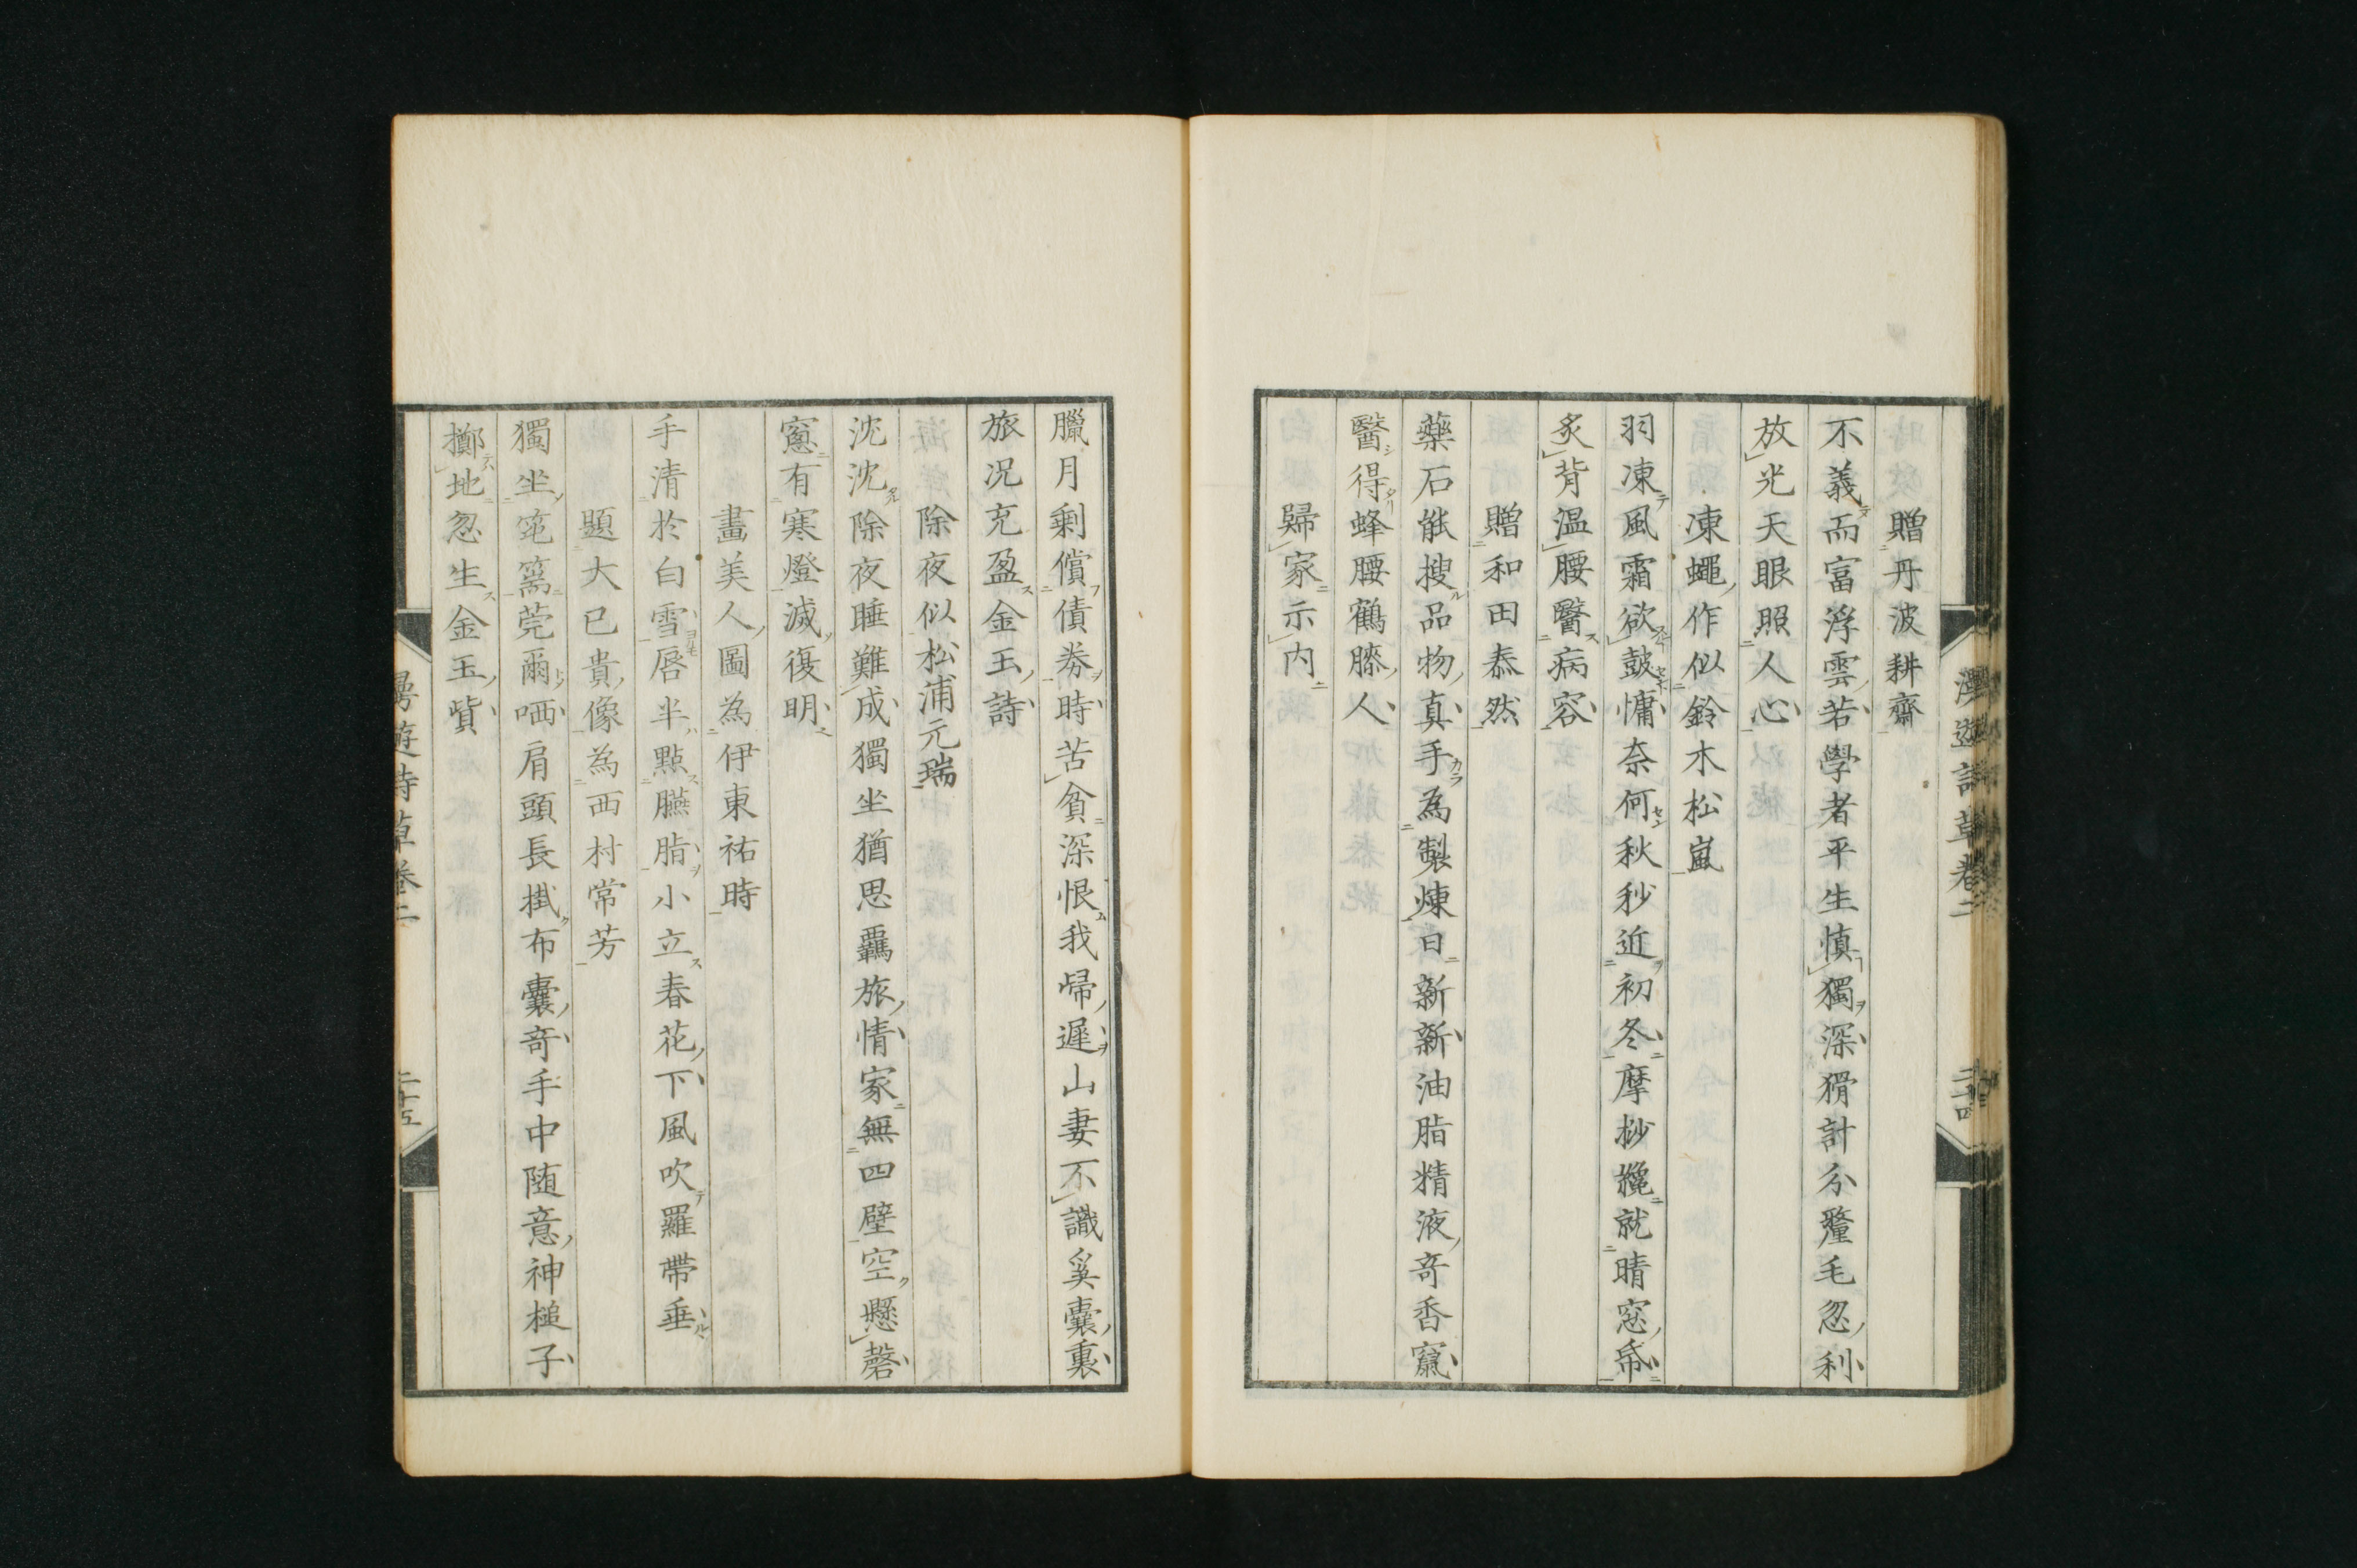 漫遊詩草卷二
二十四
贈丹波耕齋
不義而富浮雲若學者平生慎獨深猾計分釐毛忽利
放光天眼照人心
凍蠅作似鈴木松嵐
羽凍風霜欲鼓慵奈何秋秒近初冬摩挱纔就晴窓帋
炙背温腰醫病容
贈和田泰然
藥石能搜品物真手為製煉日新新油脂精液奇香竄
醫得蜂腰鶴膝人
歸家示内
臘月剩償債券時苦貧深恨我帰遲山妻不識奚囊裏
旅况充盈金玉詩
除夜似松浦元瑞
沈沈除夜睡難成獨坐猶思羈旅情家無四壁空懸磬
窻有寒燈滅復明
畫美人圖為伊東祐時
手清於白雪唇半點臙脂小立春花下風吹羅帶垂
題大已貴像為西村常芳
獨坐穹窩莞爾哂肩頭長掛布囊奇手中随意神槌子
擲地忽生金玉貲
漫遊詩草卷二
二十五